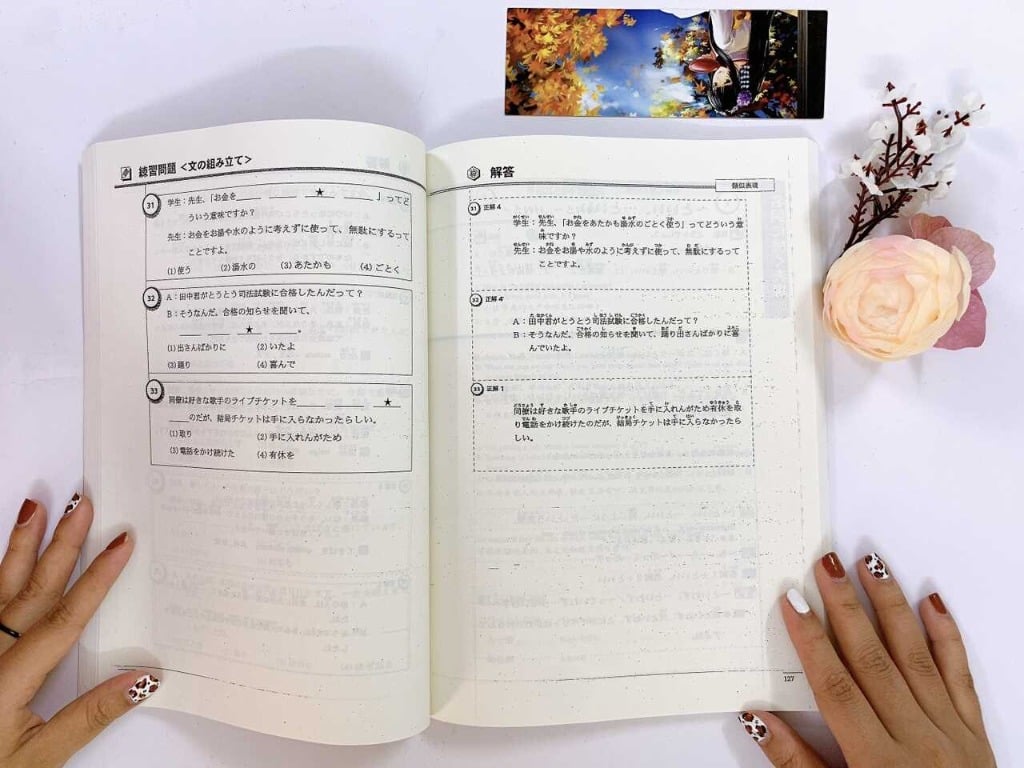 練習問題 <文の組み立て>
31
学生：先生、「お金を＿＿＿ ＿＿＿ ★ ＿＿＿」ってど
ういう意味ですか？
先生：お金をお湯や水のように考えずに使って、無駄にするって
ことですよ。
(1) 使う (2) 湯水の (3) あたかも (4) ごとく
32
A：田中君がとうとう司法試験に合格したんだって？
B：そうなんだ。合格の知らせを聞いて、
＿＿＿ ★ ＿＿＿ ＿＿＿。
(1) 出さんばかりに (2) いたよ
(3) 踊り (4) 喜んで
33
同僚は好きな歌手のライブチケットを＿＿＿ ＿＿＿ ★
＿＿＿のだが、結局チケットは手に入らなかったらしい。
(1) 取り (2) 手に入れんがため
(3) 電話をかけ続けた (4) 有休を
解答
類似表現
31 正解 4
学生：先生、「お金をあたかも湯水のごとく使う」ってどういう意
味ですか？
先生：お金をお湯や水のように考えずに使って、無駄にするって
ことですよ。
32 正解 4
A：田中君がとうとう司法試験に合格したんだって？
B：そうなんだ。合格の知らせを聞いて、踊り出さんばかりに喜
んでいたよ。
33 正解 1
同僚は好きな歌手のライブチケットを手に入れんがため有休を取
り電話をかけ続けたのだが、結局チケットは手に入らなかったら
しい。
127